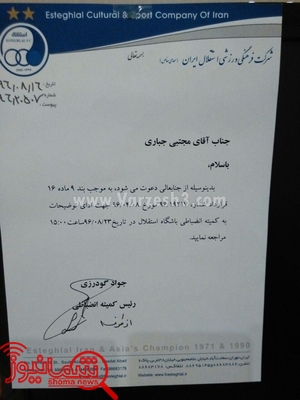 Esteghlal Cultural & Sport Company Of Iran
بسمه تعالی
شرکت فرهنگی ورزشی استقلال ایران (سهامی عام)
تاریخ: ۹۶/۰۸/۱۶
شماره: ۹۶/۲۵۰۷
پیوست:
جناب آقای مجتبی جباری
باسلام،
بدینوسیله از جنابعالی دعوت می شود، به موجب بند ۹ ماده ۱۶
قرارداد شماره مورخ جهت ادای توضیحات
به کمیته انضباطی باشگاه استقلال در تاریخ ۹۶/۰۸/۲۳ ساعت ۱۵:۰۰
مراجعه نمایید.
www.Varzesh3.com
جواد گودرزی
رئیس کمیته انضباطی
از طرف
Esteghlal Iran & Asia's Champion 1971 & 1990
شمانیوز
shoma news